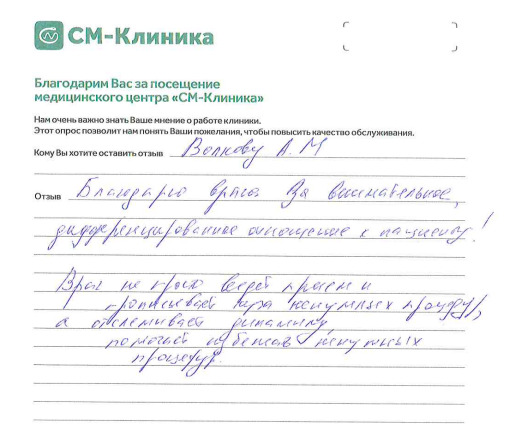 СМ-Клиника
Благодарим Вас за посещение
медицинского центра «СМ-Клиника»
Нам очень важно знать Ваше мнение о работе клиники.
Этот опрос позволит нам понять Ваши пожелания, чтобы повысить качество обслуживания.
Кому Вы хотите оставить отзыв Волкову А.М
Отзыв Благодарю врача за внимательное,
дифференцированное отношение к пациенту!
Врач не просто ведет прием и
прописывает ненужных процедур,
а отслеживает динамику,
помогает избежать ненужных
процедур.